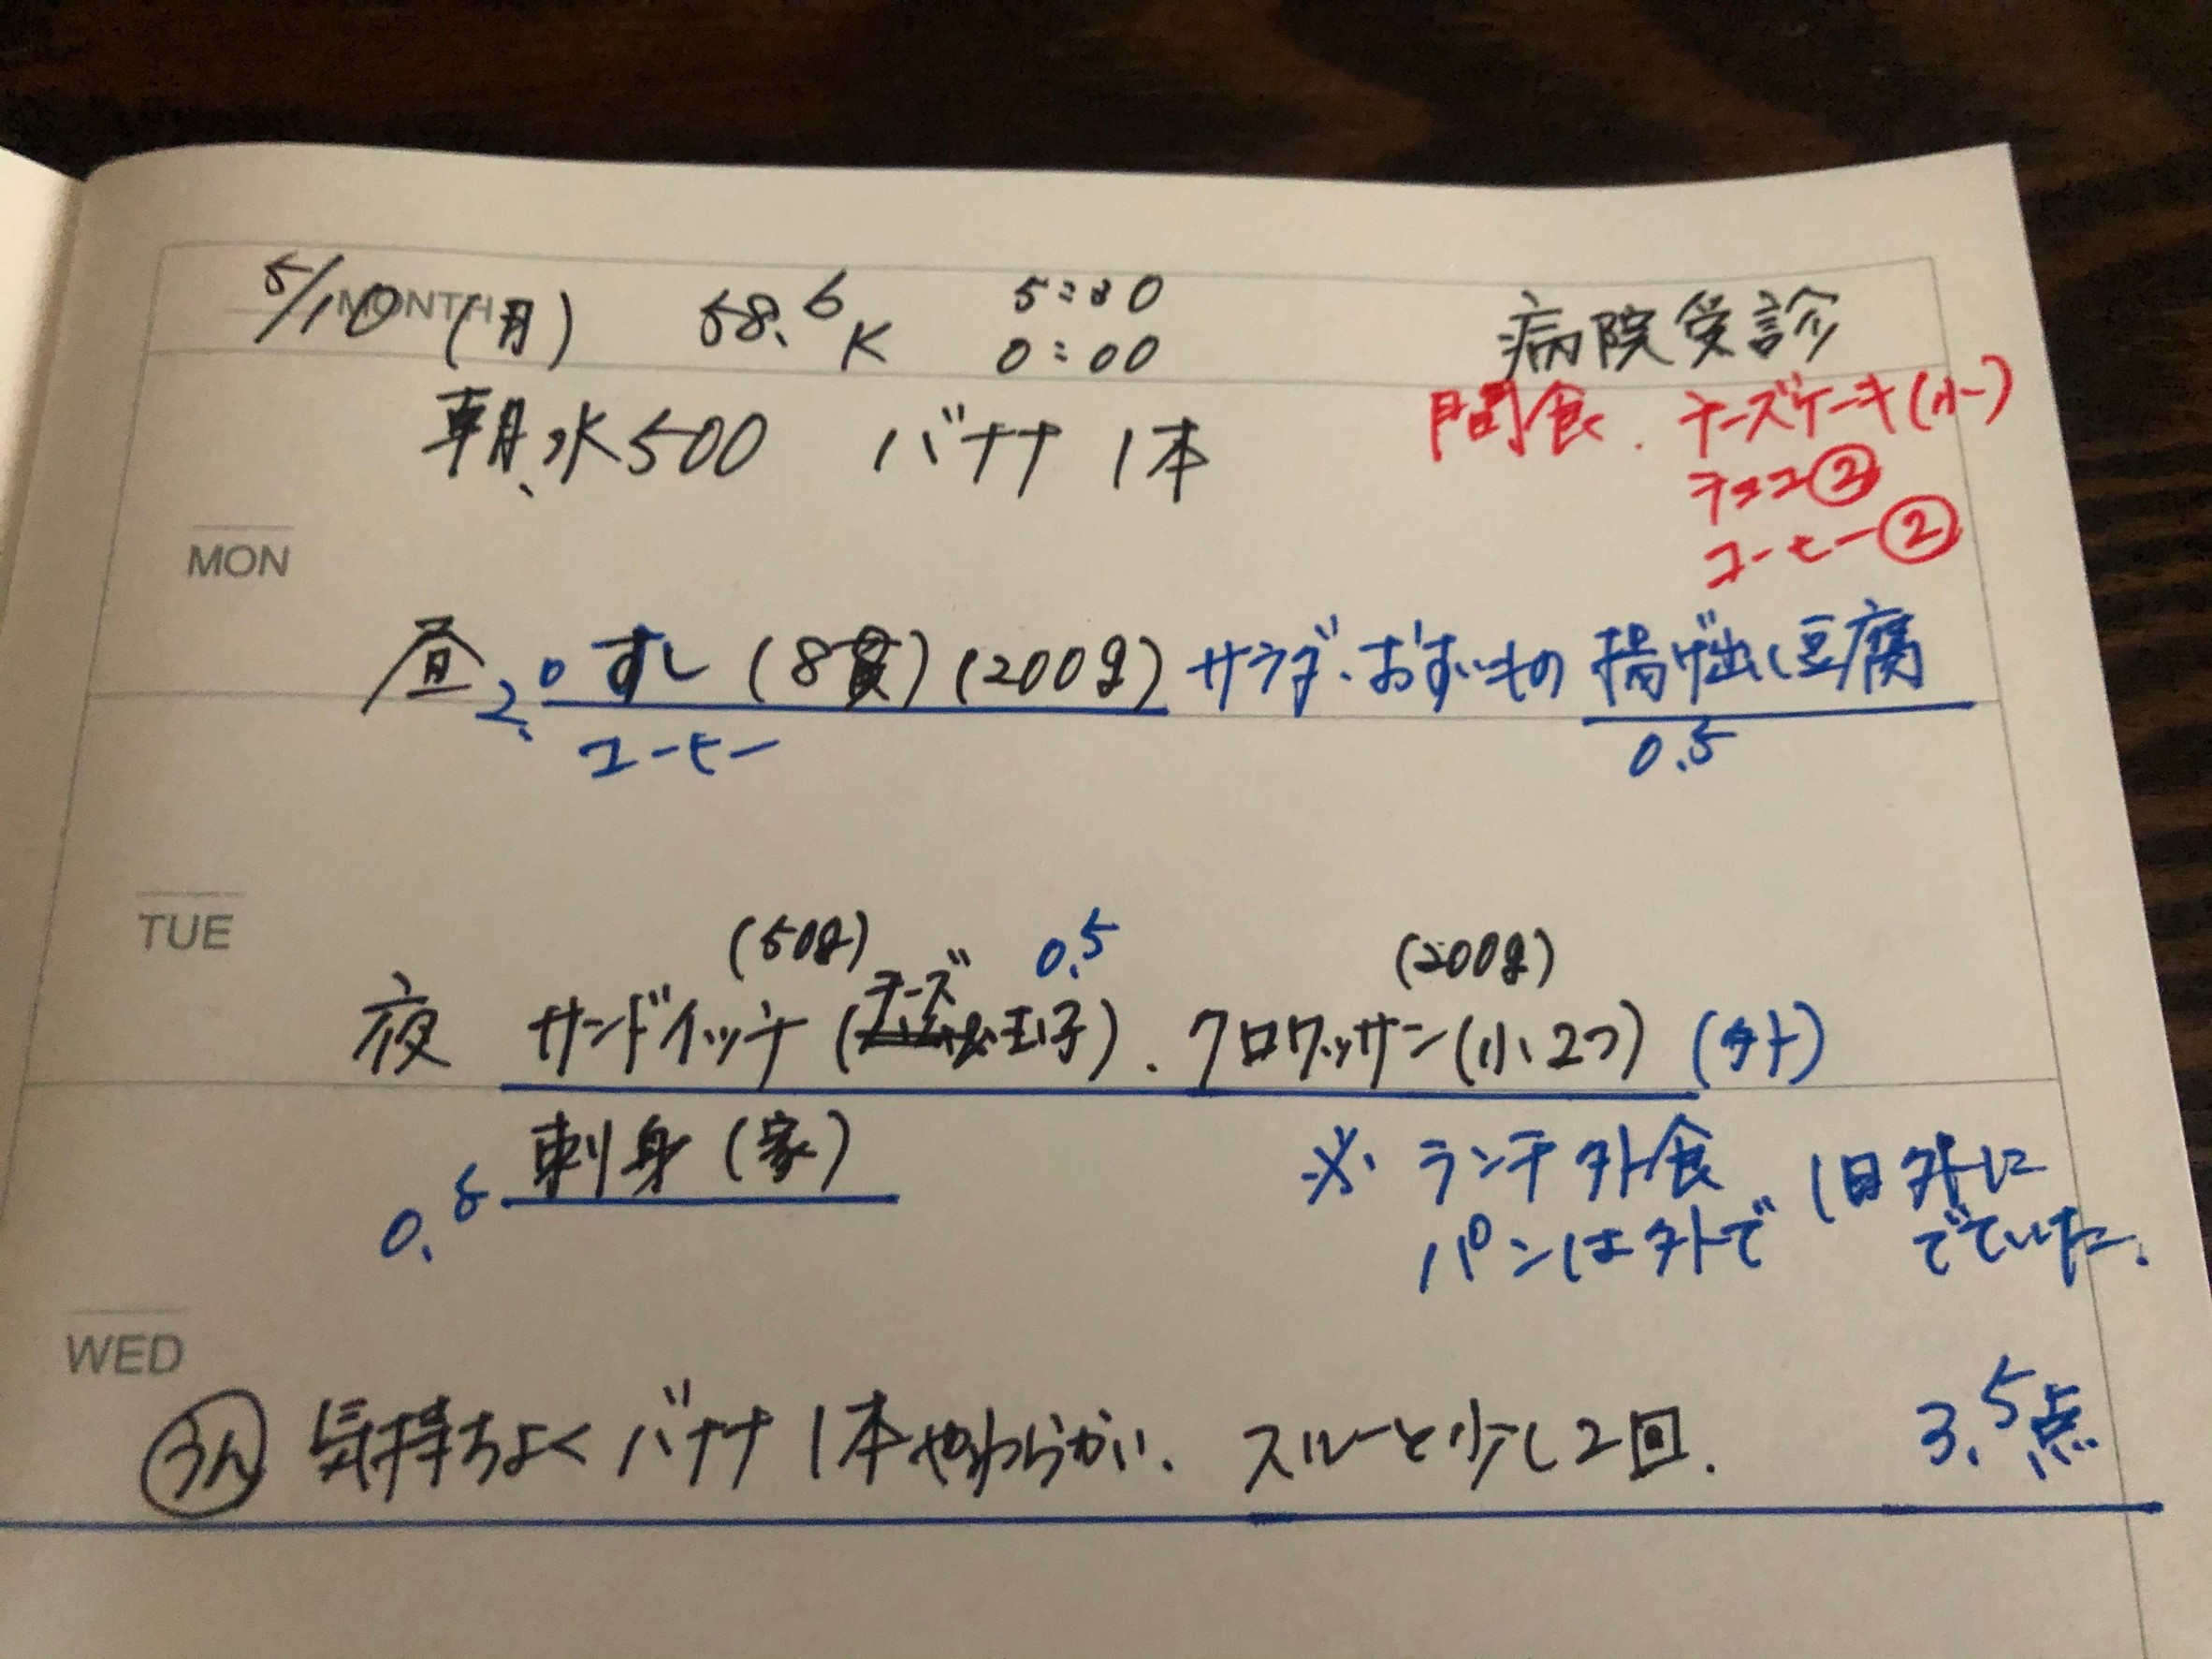 5/10 (月) 58.6K 5:30 病院受診
MONTH
0:00
朝、水500 バナナ 1本
間食. チーズケーキ(小)
チョコ③
コーヒー②
MON
昼 2.0 すし (8貫) (200g) サラダ・おすいもの 揚げ出し豆腐
コーヒー 0.5
TUE
(50g) 0.5 (200g)
夜 サンドイッチ (チーズ 玉子). クロワッサン(小2つ) (外)
0.5 刺身 (家)
※ ランチ外食
パンは外で
1日外に
でていた.
WED
気持ちよく バナナ 1本やわらかい. スルーと少し2回. 3.5点